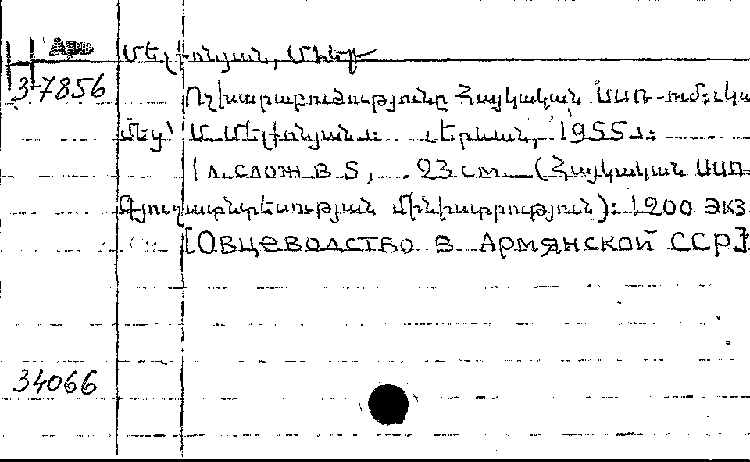 Մելքոնյան, Մհեր
3-7856
Ոչխարաբուծությունը Հայկական ՍՍՌ-ում: կա
մեջ՝ Մ. Մելքոնյան: Երևան, 1955 թ:
1 л. слож в 5, 23 см (Հայկական ՍՍՌ
Գյուղատնտեսության մինիստրություն): 1200 экз
[Овцеводство в Армянской ССР]
34066